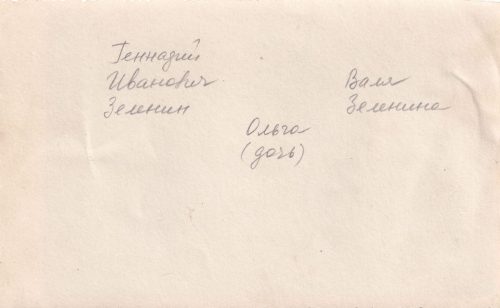 Геннадий
Иванович
Зеленин
Валя
Зеленина
Ольга
(дочь)